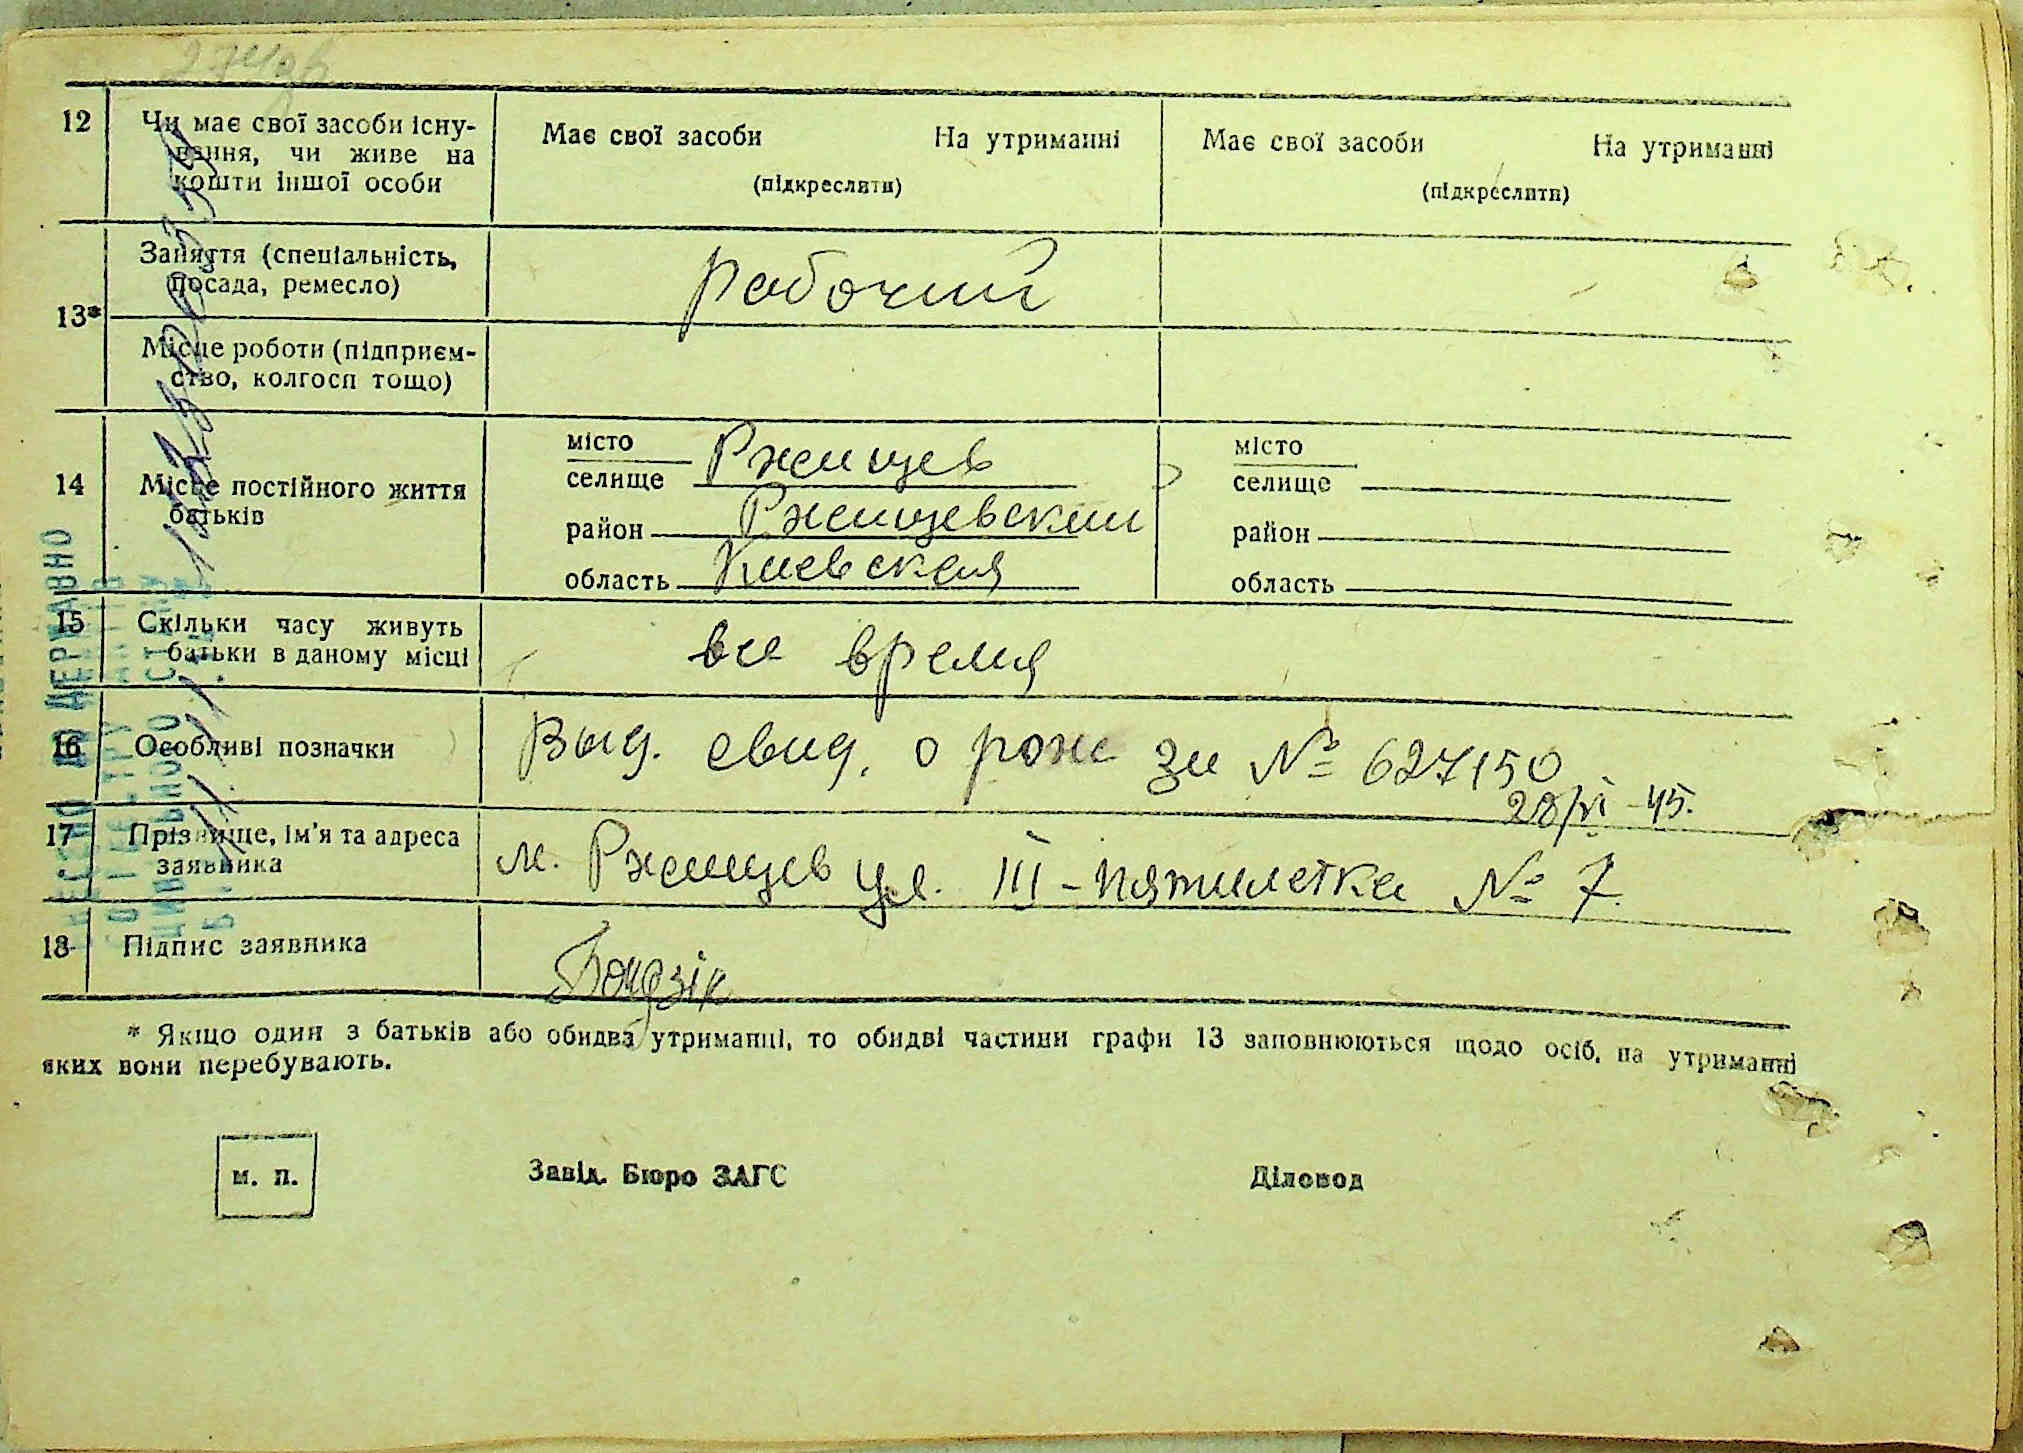 12 Чи має свої засоби існу-
вання, чи живе на
кошти іншої особи
Має свої засоби На утриманні
(підкреслити)
Має свої засоби На утриманні
(підкреслити)
13*
Заняття (спеціальність,
посада, ремесло)
рабочий
Місце роботи (підприєм-
ство, колгосп тощо)
14 Місце постійного життя
батьків
місто
селище Ржищев
район Ржищевский
область Киевская
місто
селище
район
область
15 Скільки часу живуть
батьки в даному місці
все время
16 Особливі позначки
Выд. свид. о рож за № 627150
28/VI -45.
17 Прізвище, ім'я та адреса
заявника
м. Ржищев ул. III-пятилетка № 7.
18 Підпис заявника
* Якщо один з батьків або обидва утриманці, то обидві частини графи 13 заповнюються щодо осіб, на утриманні
яких вони перебувають.
м. п.
Завід. Бюро ЗАГС
Діловод